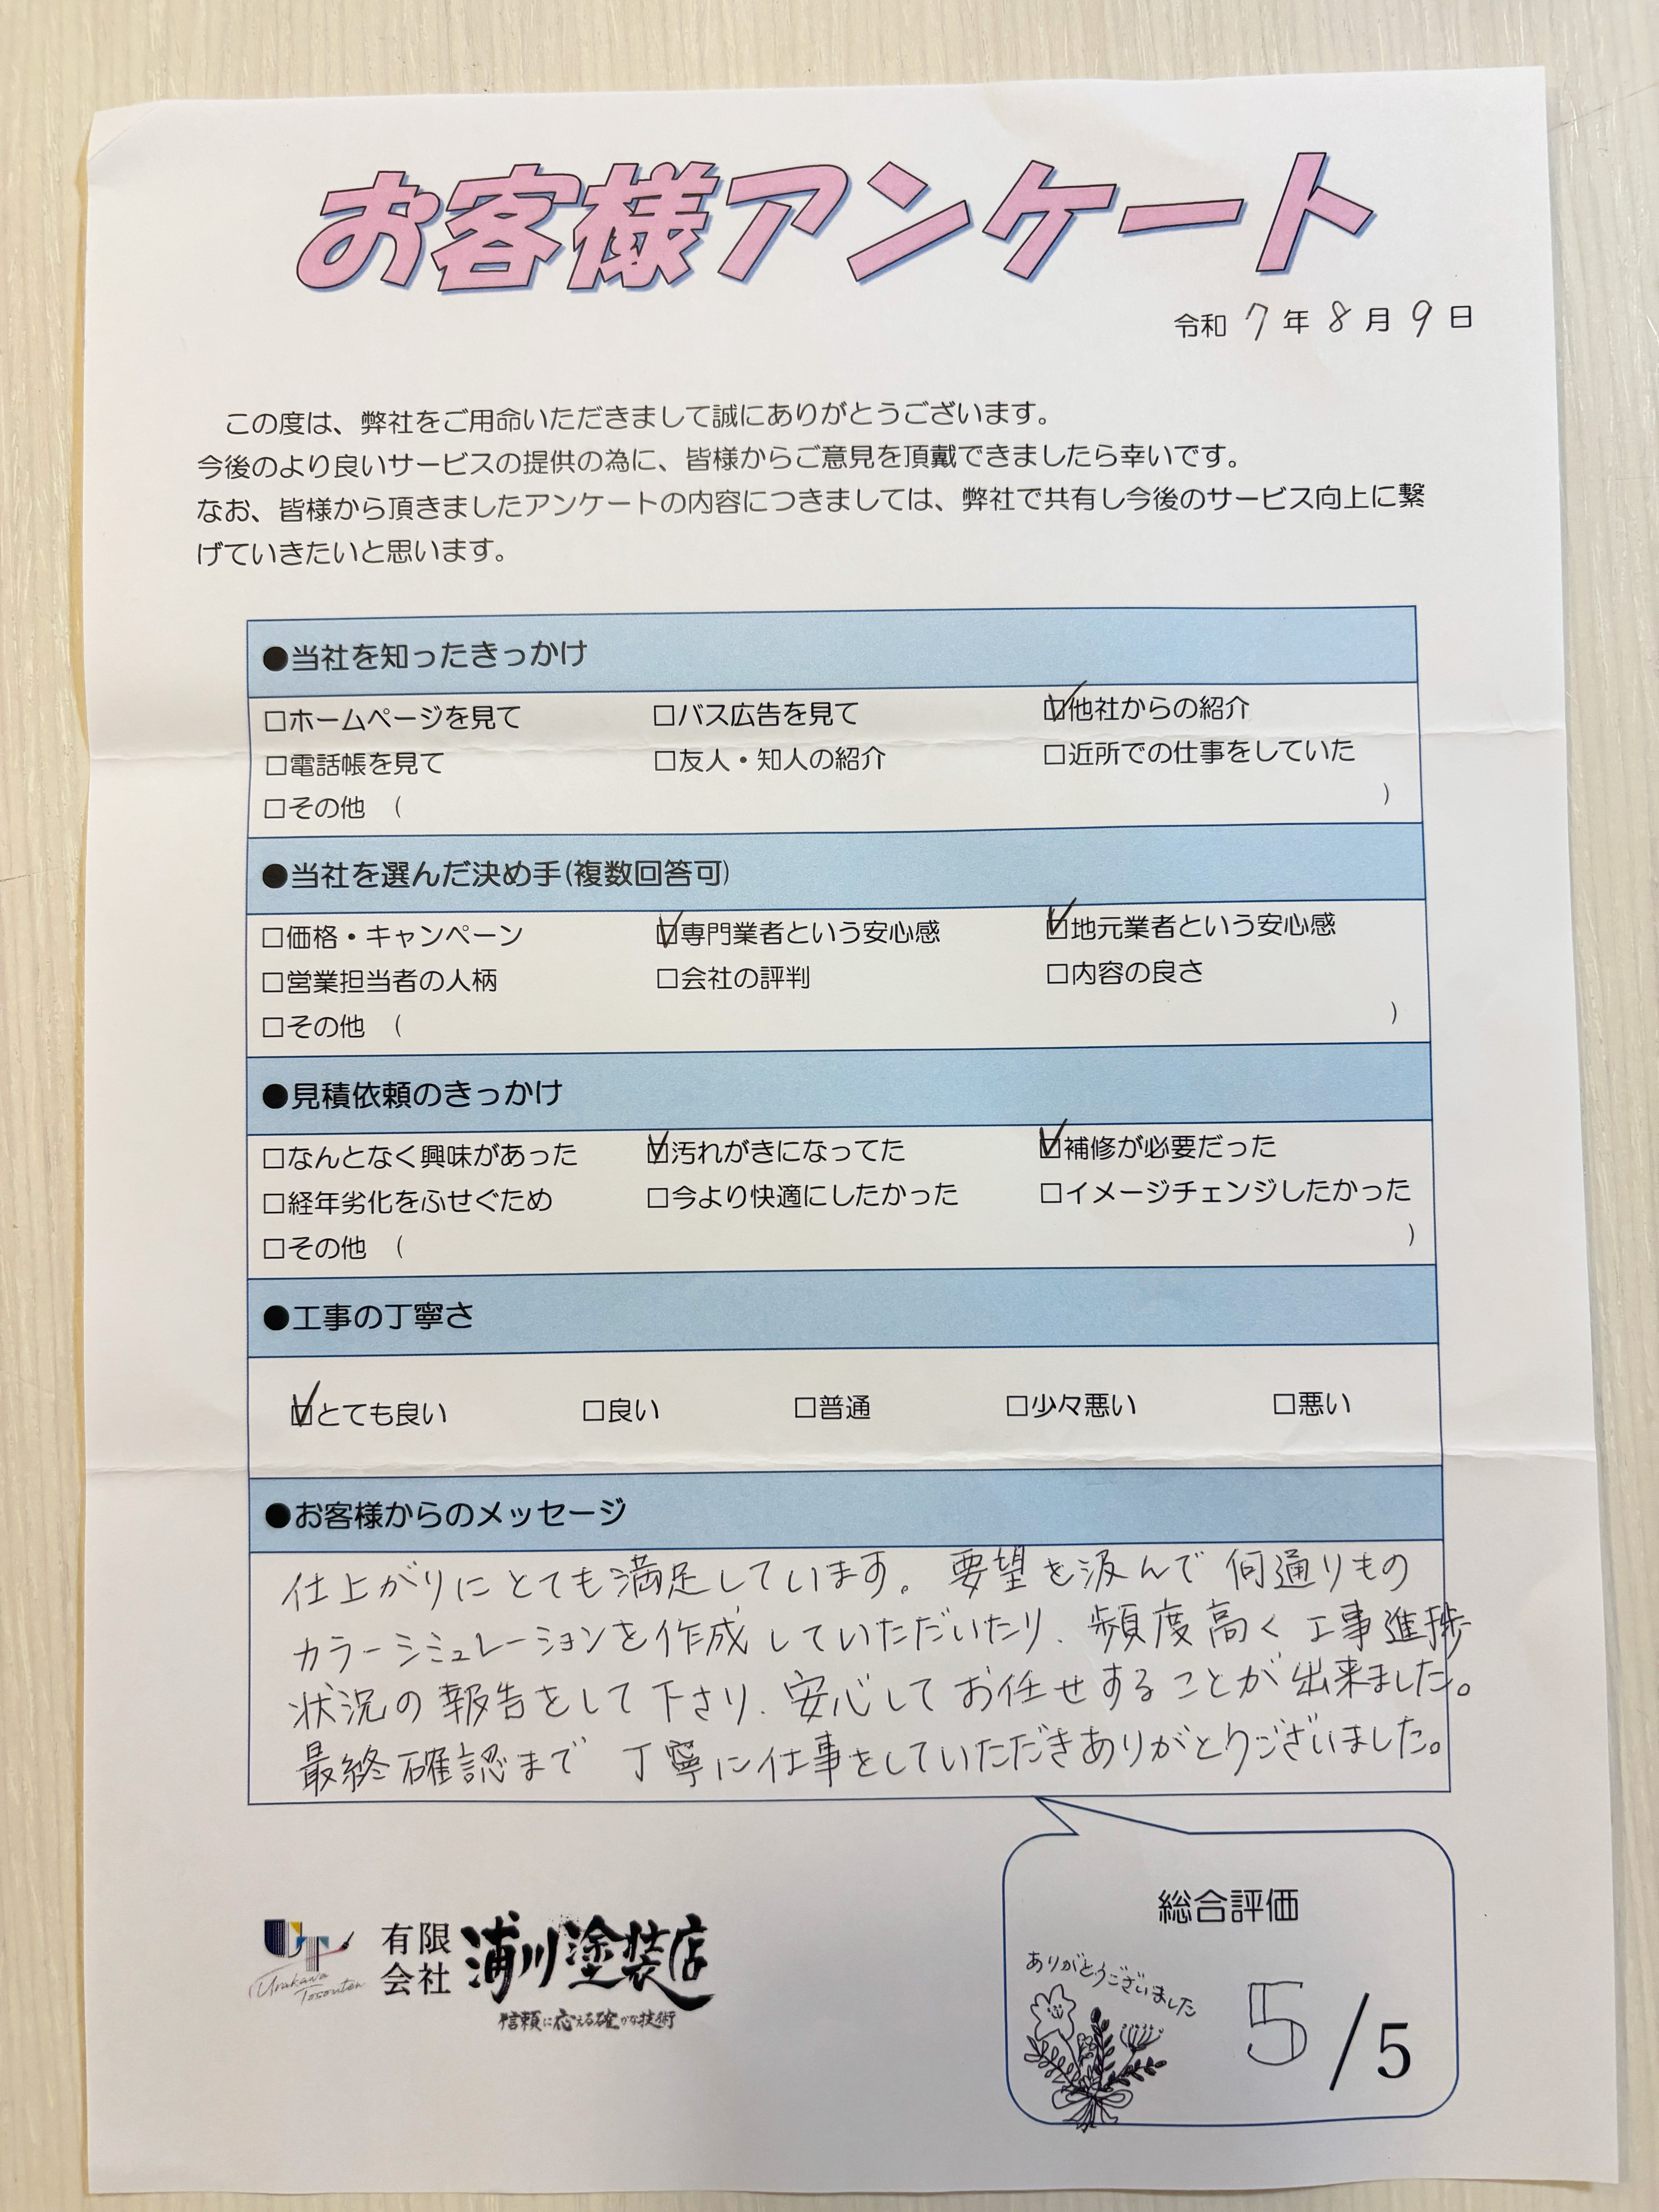 お客様アンケート
令和 7 年 8 月 9 日
この度は、弊社をご用命いただきまして誠にありがとうございます。
今後のより良いサービスの提供の為に、皆様からご意見を頂戴できましたら幸いです。
なお、皆様から頂きましたアンケートの内容につきましては、弊社で共有し今後のサービス向上に繋
げていきたいと思います。
●当社を知ったきっかけ
□ホームページを見て □バス広告を見て ☑他社からの紹介
□電話帳を見て □友人・知人の紹介 □近所での仕事をしていた
□その他 ( )
●当社を選んだ決め手(複数回答可)
□価格・キャンペーン ☑専門業者という安心感 ☑地元業者という安心感
□営業担当者の人柄 □会社の評判 □内容の良さ
□その他 ( )
●見積依頼のきっかけ
□なんとなく興味があった ☑汚れがきになってた ☑補修が必要だった
□経年劣化をふせぐため □今より快適にしたかった □イメージチェンジしたかった
□その他 ( )
●工事の丁寧さ
☑とても良い □良い □普通 □少々悪い □悪い
●お客様からのメッセージ
仕上がりにとても満足しています。要望を汲んで何通りもの
カラーシミュレーションを作成していただいたり、頻度高く工事進捗
状況の報告をして下さり、安心してお任せすることが出来ました。
最終確認まで 丁寧に仕事をしていただきありがとうございました。
総合評価
ありがとうございました
5/5
UT
Urakawa
Tosouten
有限
会社
浦川塗装店
信頼に応える確かな技術